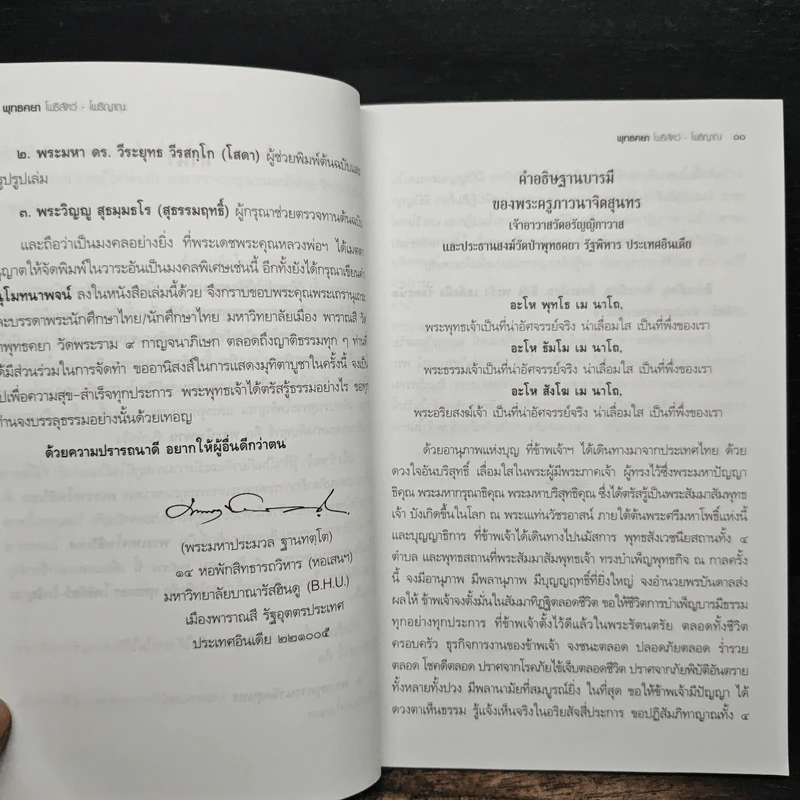 พุทธคยา โพธิสัตว์ - โพธิญาณ
๒. พระมหา ดร. วีระยุทธ วีรสกฺโก (โสดา) ผู้ช่วยพิมพ์ต้นฉบับและ
รูปรูปเล่ม
๓. พระวิญญู สุธมฺมธโร (สุธรรมฤทธิ์) ผู้กรุณาช่วยตรวจทานต้นฉบับ
และถือว่าเป็นมงคลอย่างยิ่ง ที่พระเดชพระคุณหลวงพ่อฯ ได้เมตตา
ญาตให้จัดพิมพ์ในวาระอันเป็นมงคลพิเศษเช่นนี้ อีกทั้งยังได้กรุณาเขียนคำ
นุโมทนาพจน์ ลงในหนังสือเล่มนี้ด้วย จึงกราบขอบพระคุณพระเถรานุเถระ
ละบรรดาพระนักศึกษาไทย/นักศึกษาไทย มหาวิทยาลัยเมือง พาราณสี วัด
าพุทธคยา วัดพระราม ๙ กาญจนาภิเษก ตลอดถึงญาติธรรมทุก ๆ ท่านที่
ด้มีส่วนร่วมในการจัดทำ ขออานิสงส์ในการแสดงมุทิตาบูชาในครั้งนี้ จงเป็น
ปเพื่อความสุข-สำเร็จทุกประการ พระพุทธเจ้าได้ตรัสรู้ธรรมอย่างไร ขอทุก
ท่านจงบรรลุธรรมอย่างนั้นด้วยเทอญ
ด้วยความปรารถนาดี อยากให้ผู้อื่นดีกว่าตน
(พระมหาประมวล ฐานทตฺโต)
๑๔ หอพักสิทธารถวิหาร (หอเสนฯ)
มหาวิทยาลัยบาณารัสฮินดู (B.H.U.)
เมืองพาราณสี รัฐอุตตรประเทศ
ประเทศอินเดีย ๒๒๑๐๐๕
พุทธคยา โพธิสัตว์ - โพธิญาณ ๑๑
คำอธิษฐานบารมี
ของพระครูภาวนาจิตสุนทร
เจ้าอาวาสวัดอรัญญิกาวาส
และประธานสงฆ์วัดป่าพุทธคยา รัฐพิหาร ประเทศอินเดีย
อะโห พุทโธ เม นาโถ,
พระพุทธเจ้าเป็นที่น่าอัศจรรย์จริง น่าเลื่อมใส เป็นที่พึ่งของเรา
อะโห ธัมโม เม นาโถ,
พระธรรมเจ้าเป็นที่น่าอัศจรรย์จริง น่าเลื่อมใส เป็นที่พึ่งของเรา
อะโห สังโฆ เม นาโถ,
พระอริยสงฆ์เจ้า เป็นที่น่าอัศจรรย์จริง น่าเลื่อมใส เป็นที่พึ่งของเรา
ด้วยอานุภาพแห่งบุญ ที่ข้าพเจ้าฯ ได้เดินทางมาจากประเทศไทย ด้วย
ดวงใจอันบริสุทธิ์ เลื่อมใสในพระผู้มีพระภาคเจ้า ผู้ทรงไว้ซึ่งพระมหาปัญญา
ธิคุณ พระมหากรุณาธิคุณ พระมหาบริสุทธิคุณ ซึ่งได้ตรัสรู้เป็นพระสัมมาสัมพุทธ
เจ้า บังเกิดขึ้นในโลก ณ พระแท่นวัชรอาสน์ ภายใต้ต้นพระศรีมหาโพธิ์แห่งนี้
และบุญญาธิการ ที่ข้าพเจ้าได้เดินทางไปนมัสการ พุทธสังเวชนียสถานทั้ง ๔
ตำบล และพุทธสถานที่พระสัมมาสัมพุทธเจ้า ทรงบำเพ็ญพุทธกิจ ณ กาลครั้ง
นี้ จงมีอานุภาพ มีพลานุภาพ มีบุญฤทธิ์ที่ยิ่งใหญ่ จงอำนวยพรบันดาลส่ง
ผลให้ ข้าพเจ้าจงตั้งมั่นในสัมมาทิฏฐิตลอดชีวิต ขอให้ชีวิตการบำเพ็ญบารมีธรรม
ทุกอย่างทุกประการ ที่ข้าพเจ้าตั้งไว้ดีแล้วในพระรัตนตรัย ตลอดทั้งชีวิต
ครอบครัว ธุรกิจการงานของข้าพเจ้า จงชนะตลอด ปลอดภัยตลอด ร่ำรวย
ตลอด โชคดีตลอด ปราศจากโรคภัยไข้เจ็บตลอดชีวิต ปราศจากภัยพิบัติอันตราย
ทั้งหลายทั้งปวง มีพลานามัยที่สมบูรณ์ยิ่ง ในที่สุด ขอให้ข้าพเจ้ามีปัญญา ได้
ดวงตาเห็นธรรม รู้แจ้งเห็นจริงในอริยสัจสี่ประการ ขอปฏิสัมภิทาญาณทั้ง ๔